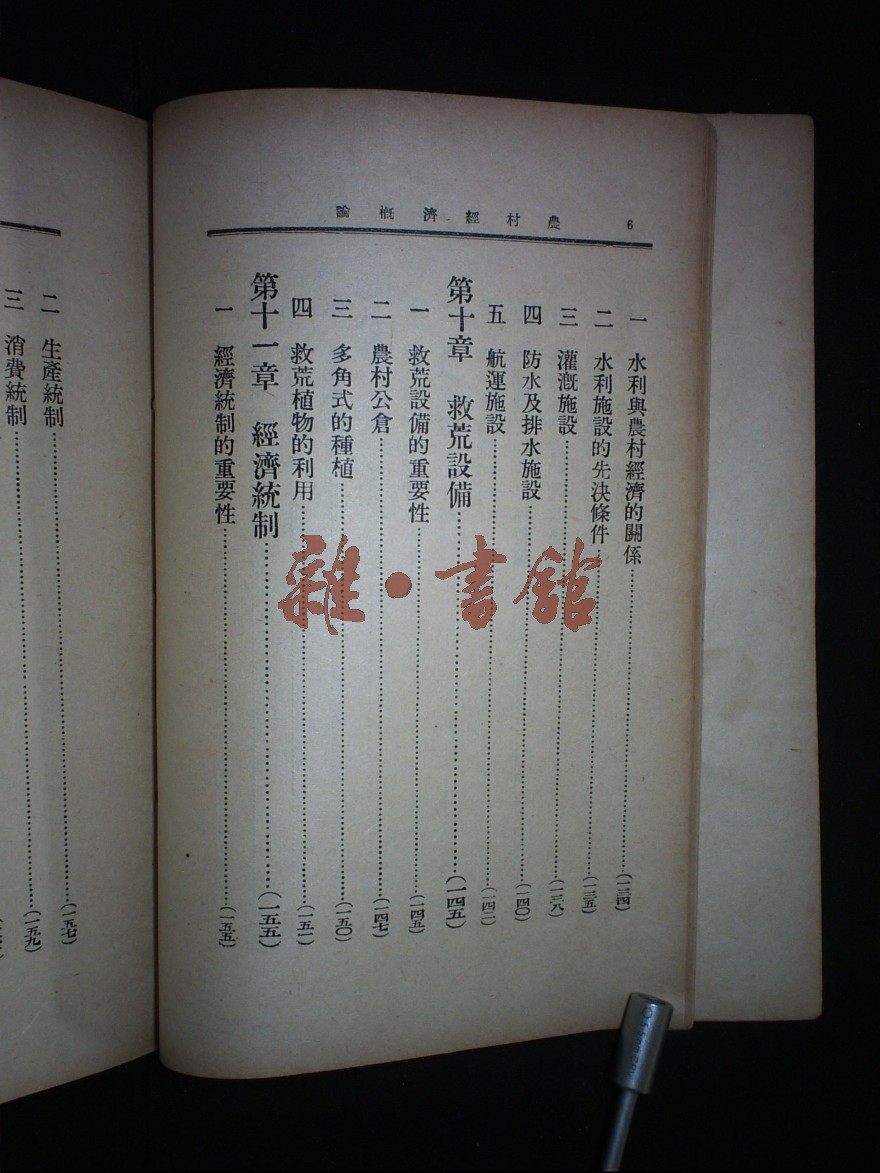 農村經濟槪論
6
一 水利與農村經濟的關係……(一三四)
二 水利施設的先決條件……(一三五)
三 灌漑施設……(一三八)
四 防水及排水施設……(一四〇)
五 航運施設……(一四二)
第十章 救荒設備……(一四五)
一 救荒設備的重要性……(一四五)
二 農村公倉……(一四七)
三 多角式的種植……(一五〇)
四 救荒植物的利用……(一五一)
第十一章 經濟統制……(一五五)
一 經濟統制的重要性……(一五五)
二 生產統制……(一五七)
三 消費統制……(一五九)
雜·書館